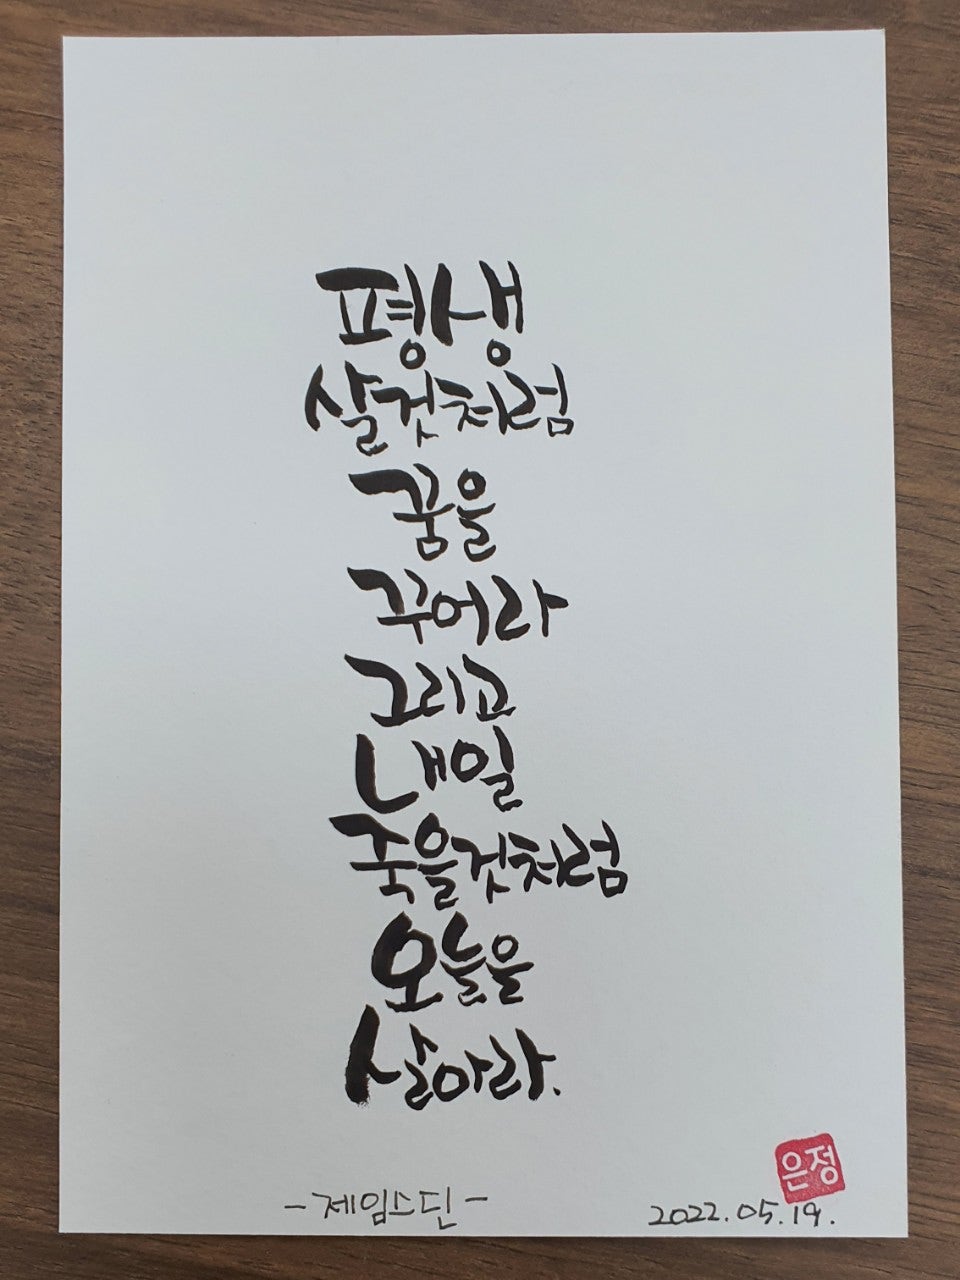 평생
살것처럼
꿈을
꾸어라
그리고
내일
죽을것처럼
오늘을
살아라.
은정
-제임스딘-
2022.05.19.